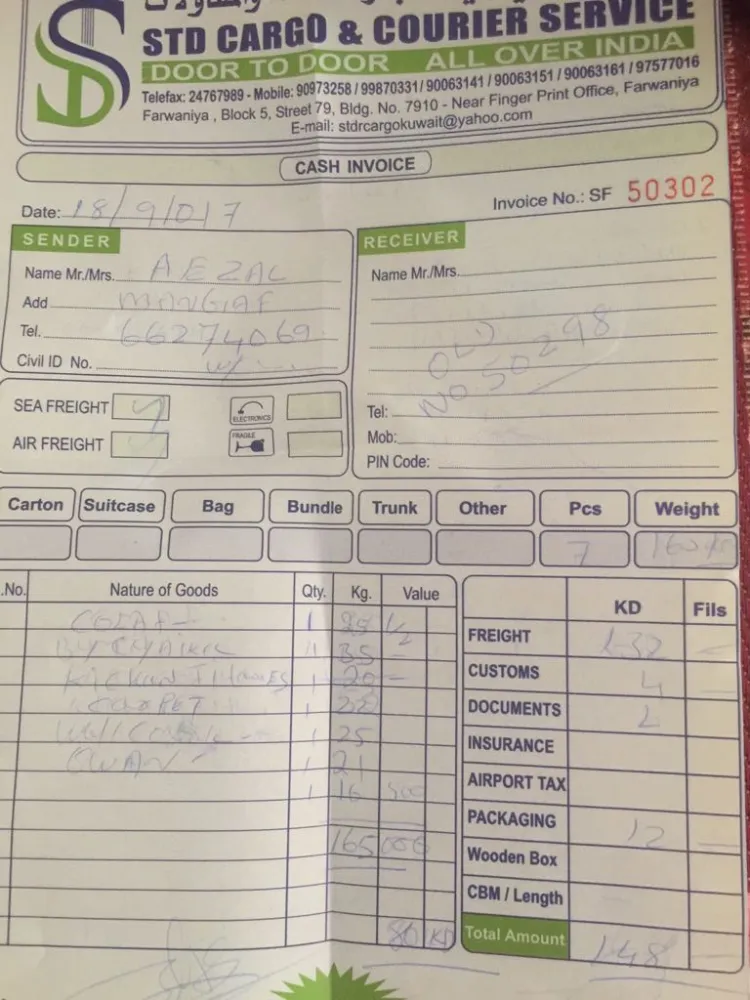 STD CARGO & COURIER SERVICE
DOOR TO DOOR ALL OVER INDIA
Telefax: 24767989 - Mobile: 90973258 / 99870331 / 90063141 / 90063151 / 90063161 / 97577016
Farwaniya , Block 5, Street 79, Bldg. No. 7910 - Near Finger Print Office, Farwaniya
E-mail: stdrcargokuwait@yahoo.com
CASH INVOICE
Date: 18/9/017
Invoice No.: SF 50302
SENDER
Name Mr./Mrs. AEZAL
Add MANGAF
Tel. 66274069
Civil ID No.
RECEIVER
Name Mr./Mrs.
OLD
NO 50298
Tel:
Mob:
PIN Code:
SEA FREIGHT
ELECTRONICS
AIR FREIGHT
FRAGILE
Carton Suitcase Bag Bundle Trunk Other Pcs Weight
7 160 KG
.No. Nature of Goods Qty. Kg. Value
1 25 1/2
1 35
1 20
CARPET 1 22
1 25
1 21
1 16 500
165 000
80 KD
KD Fils
FREIGHT 132
CUSTOMS 4
DOCUMENTS
INSURANCE
AIRPORT TAX
PACKAGING 12
Wooden Box
CBM / Length
Total Amount 148